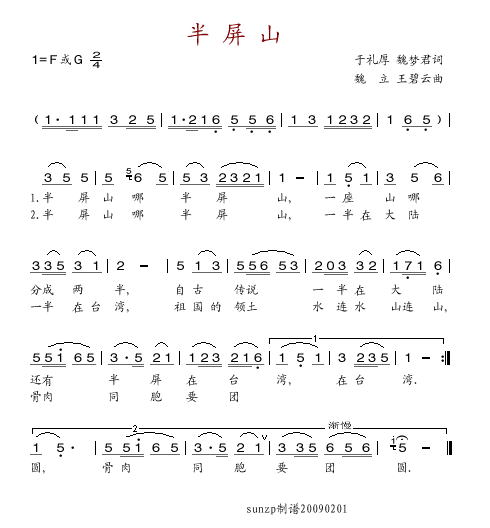 半屏山
1=F或G 2/4
于礼厚 魏梦君词
魏 立 王碧云曲
( 1· 111 | 3 2 5 | 1·216 5 5 6 | 1 1 3 1232 | 1 6 5 ) |
3 5 5 | 5 5 6 5 | 5 3 2321 | 1 - | 1 5 1 | 3 5 6 |
1.半 屏 山 哪 半 屏 山, 一 座 山 哪
2.半 屏 山 哪 半 屏 山, 一 半 在 大 陆
335 3 1 | 2 - | 5 1 3 | 556 53 | 203 32 | 1 71 6 |
分成 两 半, 自 古 传说 一 半 在 大 陆
一半 在 台 湾, 祖 国 的 领土 水 连 水 山连 山,
551 65 | 3·5 21 | 123 216 | 1 5 1 | 3 235 | 1 - :|
1
还有 半 屏 在 台 湾, 在 台 湾.
骨肉 同 胞 要 团
2
渐慢
1 5· | 5 51 65 | 3·5 21 V | 1235 2165 | 6 5 6 1 | 1 5 - ‖
圆, 骨 肉 同 胞 要 团 圆.
sunzp制谱20090201